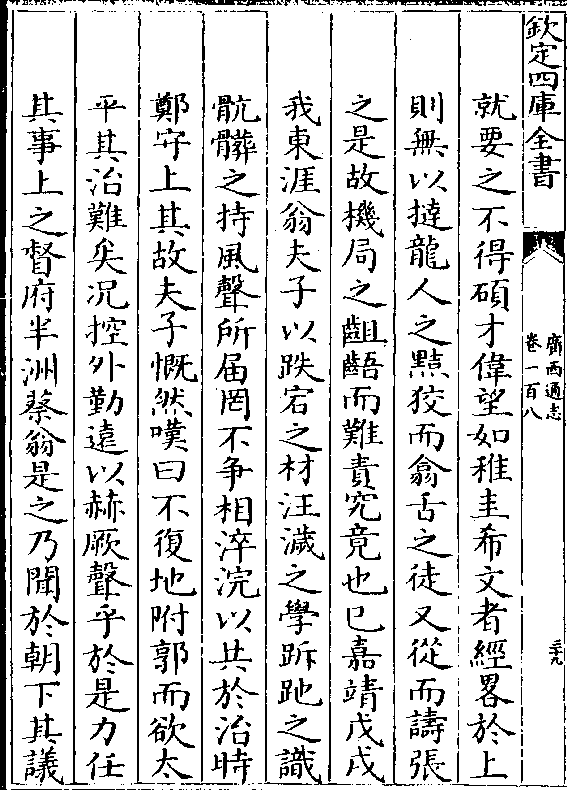 欽定四庫全書
廣西通志
卷一百八
三十九
就要之不得碩才偉望如稚圭希文者經畧於上
則無以撻龍人之黠狡而翕舌之徒又從而譸張
之是故機局之齟齬而難責究竟也已嘉靖戊戌
我東涯翁夫子以跌宕之材汪濊之學跅跎之識
骯髒之持風聲所届罔不争相淬浣以共於治時
鄭守上其故夫子慨然嘆曰不復地附郭而欲太
平其治難矣况控外勤遠以赫厥聲乎於是力任
其事上之督府半洲蔡翁是之乃聞於朝下其議